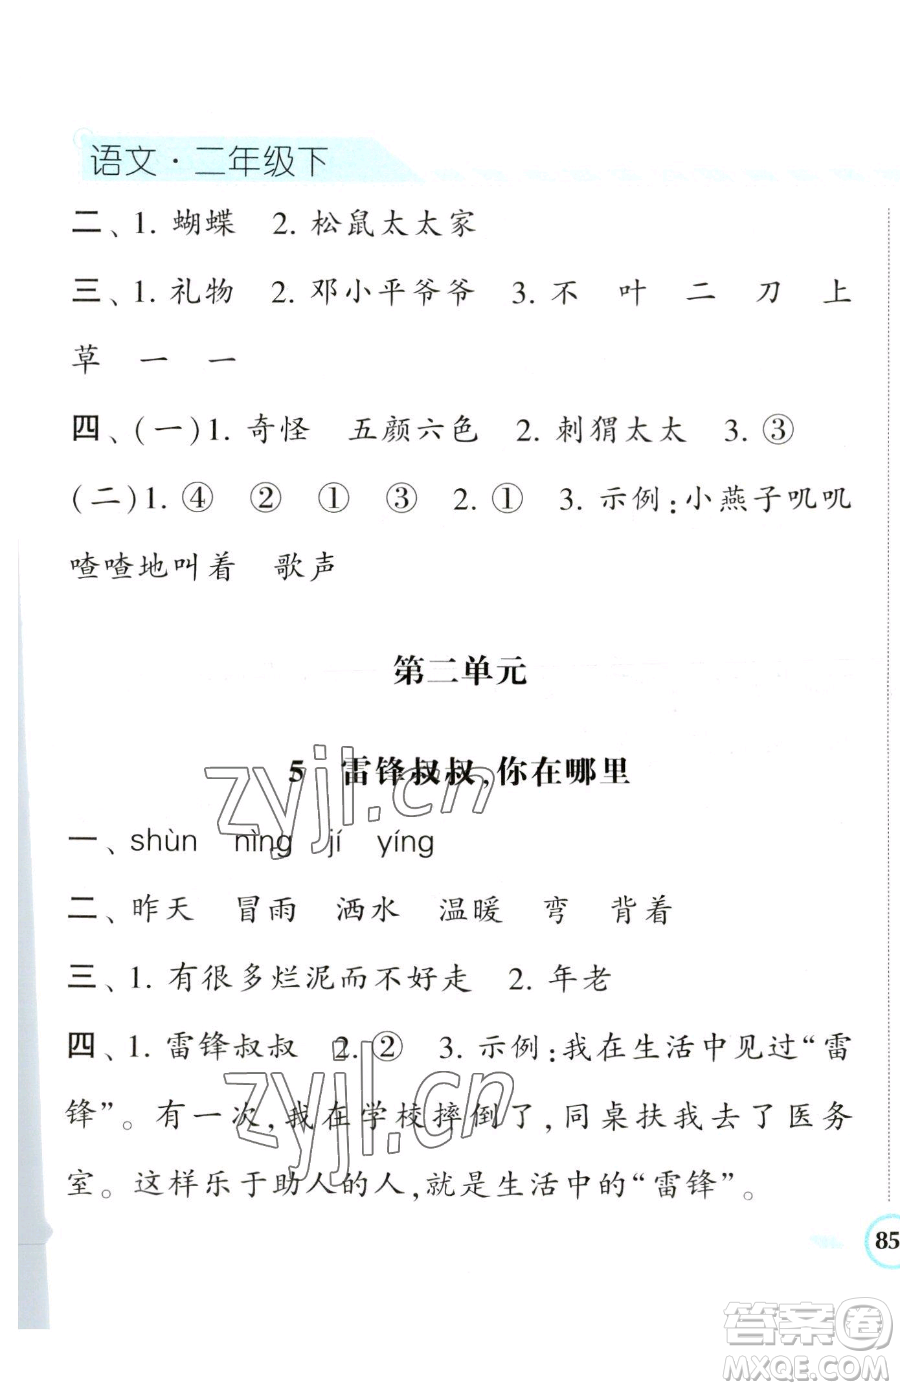 语文·二年级下
二、1. 蝴蝶 2. 松鼠太太家
三、1. 礼物 2. 邓小平爷爷 3. 不 叶 二 刀 上
草 一 一
四、(一)1. 奇怪 五颜六色 2. 刺猬太太 3. ③
(二)1. ④ ② ① ③ 2. ① 3. 示例:小燕子叽叽
喳喳地叫着 歌声
第二单元
5 雷锋叔叔,你在哪里
一、shùn nìng jí yíng
二、昨天 冒雨 洒水 温暖 弯 背着
三、1. 有很多烂泥而不好走 2. 年老
四、1. 雷锋叔叔 2. ② 3. 示例:我在生活中见过“雷
锋”。有一次,我在学校摔倒了,同桌扶我去了医务
室。这样乐于助人的人,就是生活中的“雷锋”。
85
zyjl.cn
zyjl.cn
答案圈
MXQE.COM